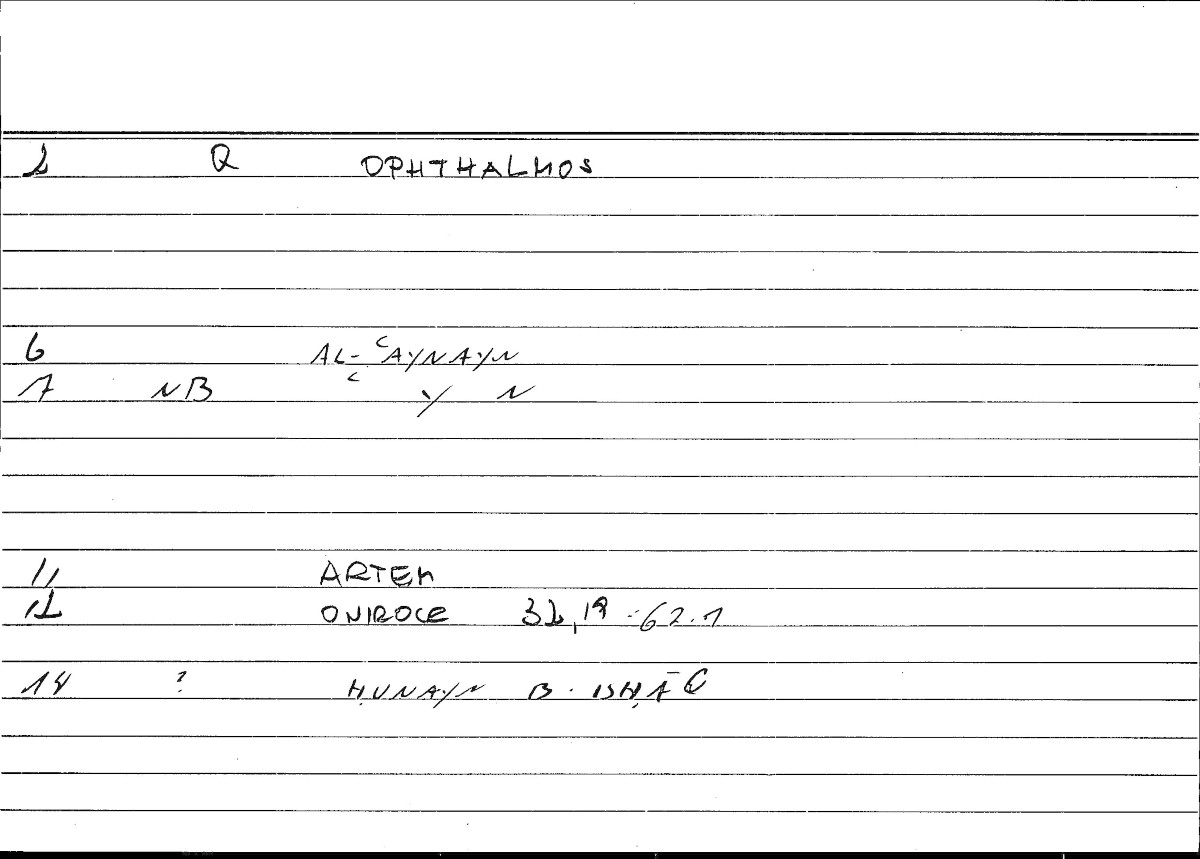 2 Q OPHTHALMOS
6 AL-ʿAYNAYN
7 NB ʿ Y N
11 ARTEM
12 ONIROCR 32,19 :62.1
14 ? ḤUNAYN B. ISḤĀQ